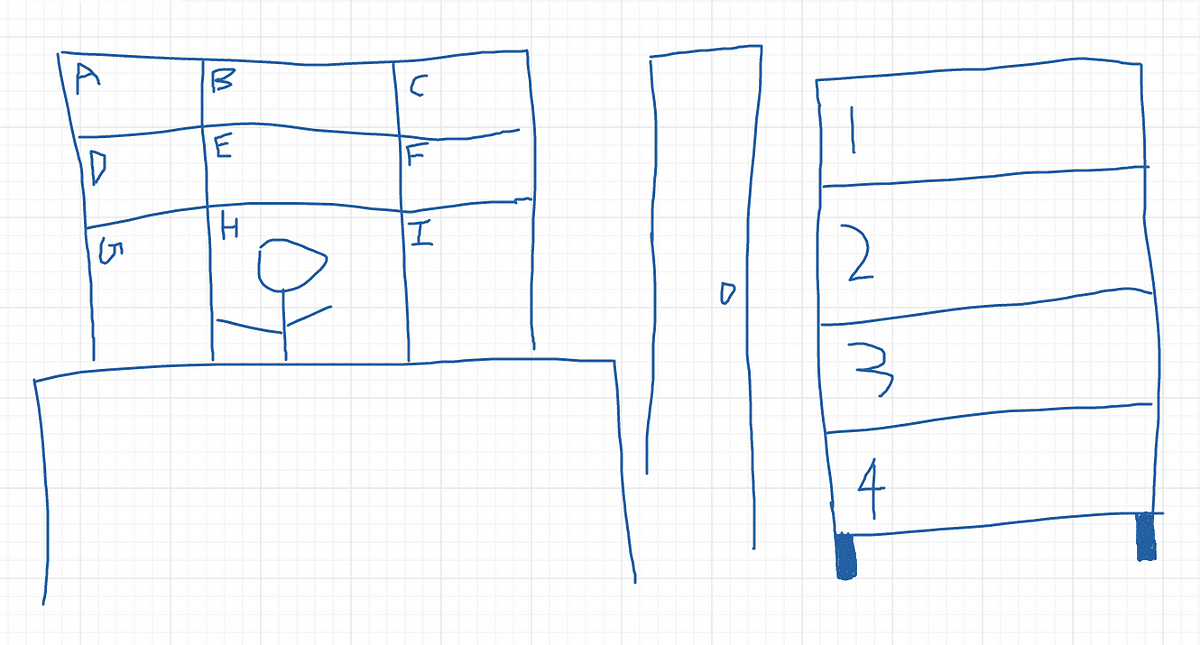 A B C
D E F
G H I
1
2
3
4